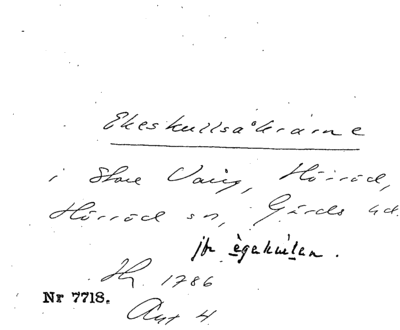 Ekeskullsåkrarne
i Store Vång, Hörröd,
Hörröd sn, Gärds hd.
jfr ègakùlan.
Hh 1786
Nr 7718.
Akt 4